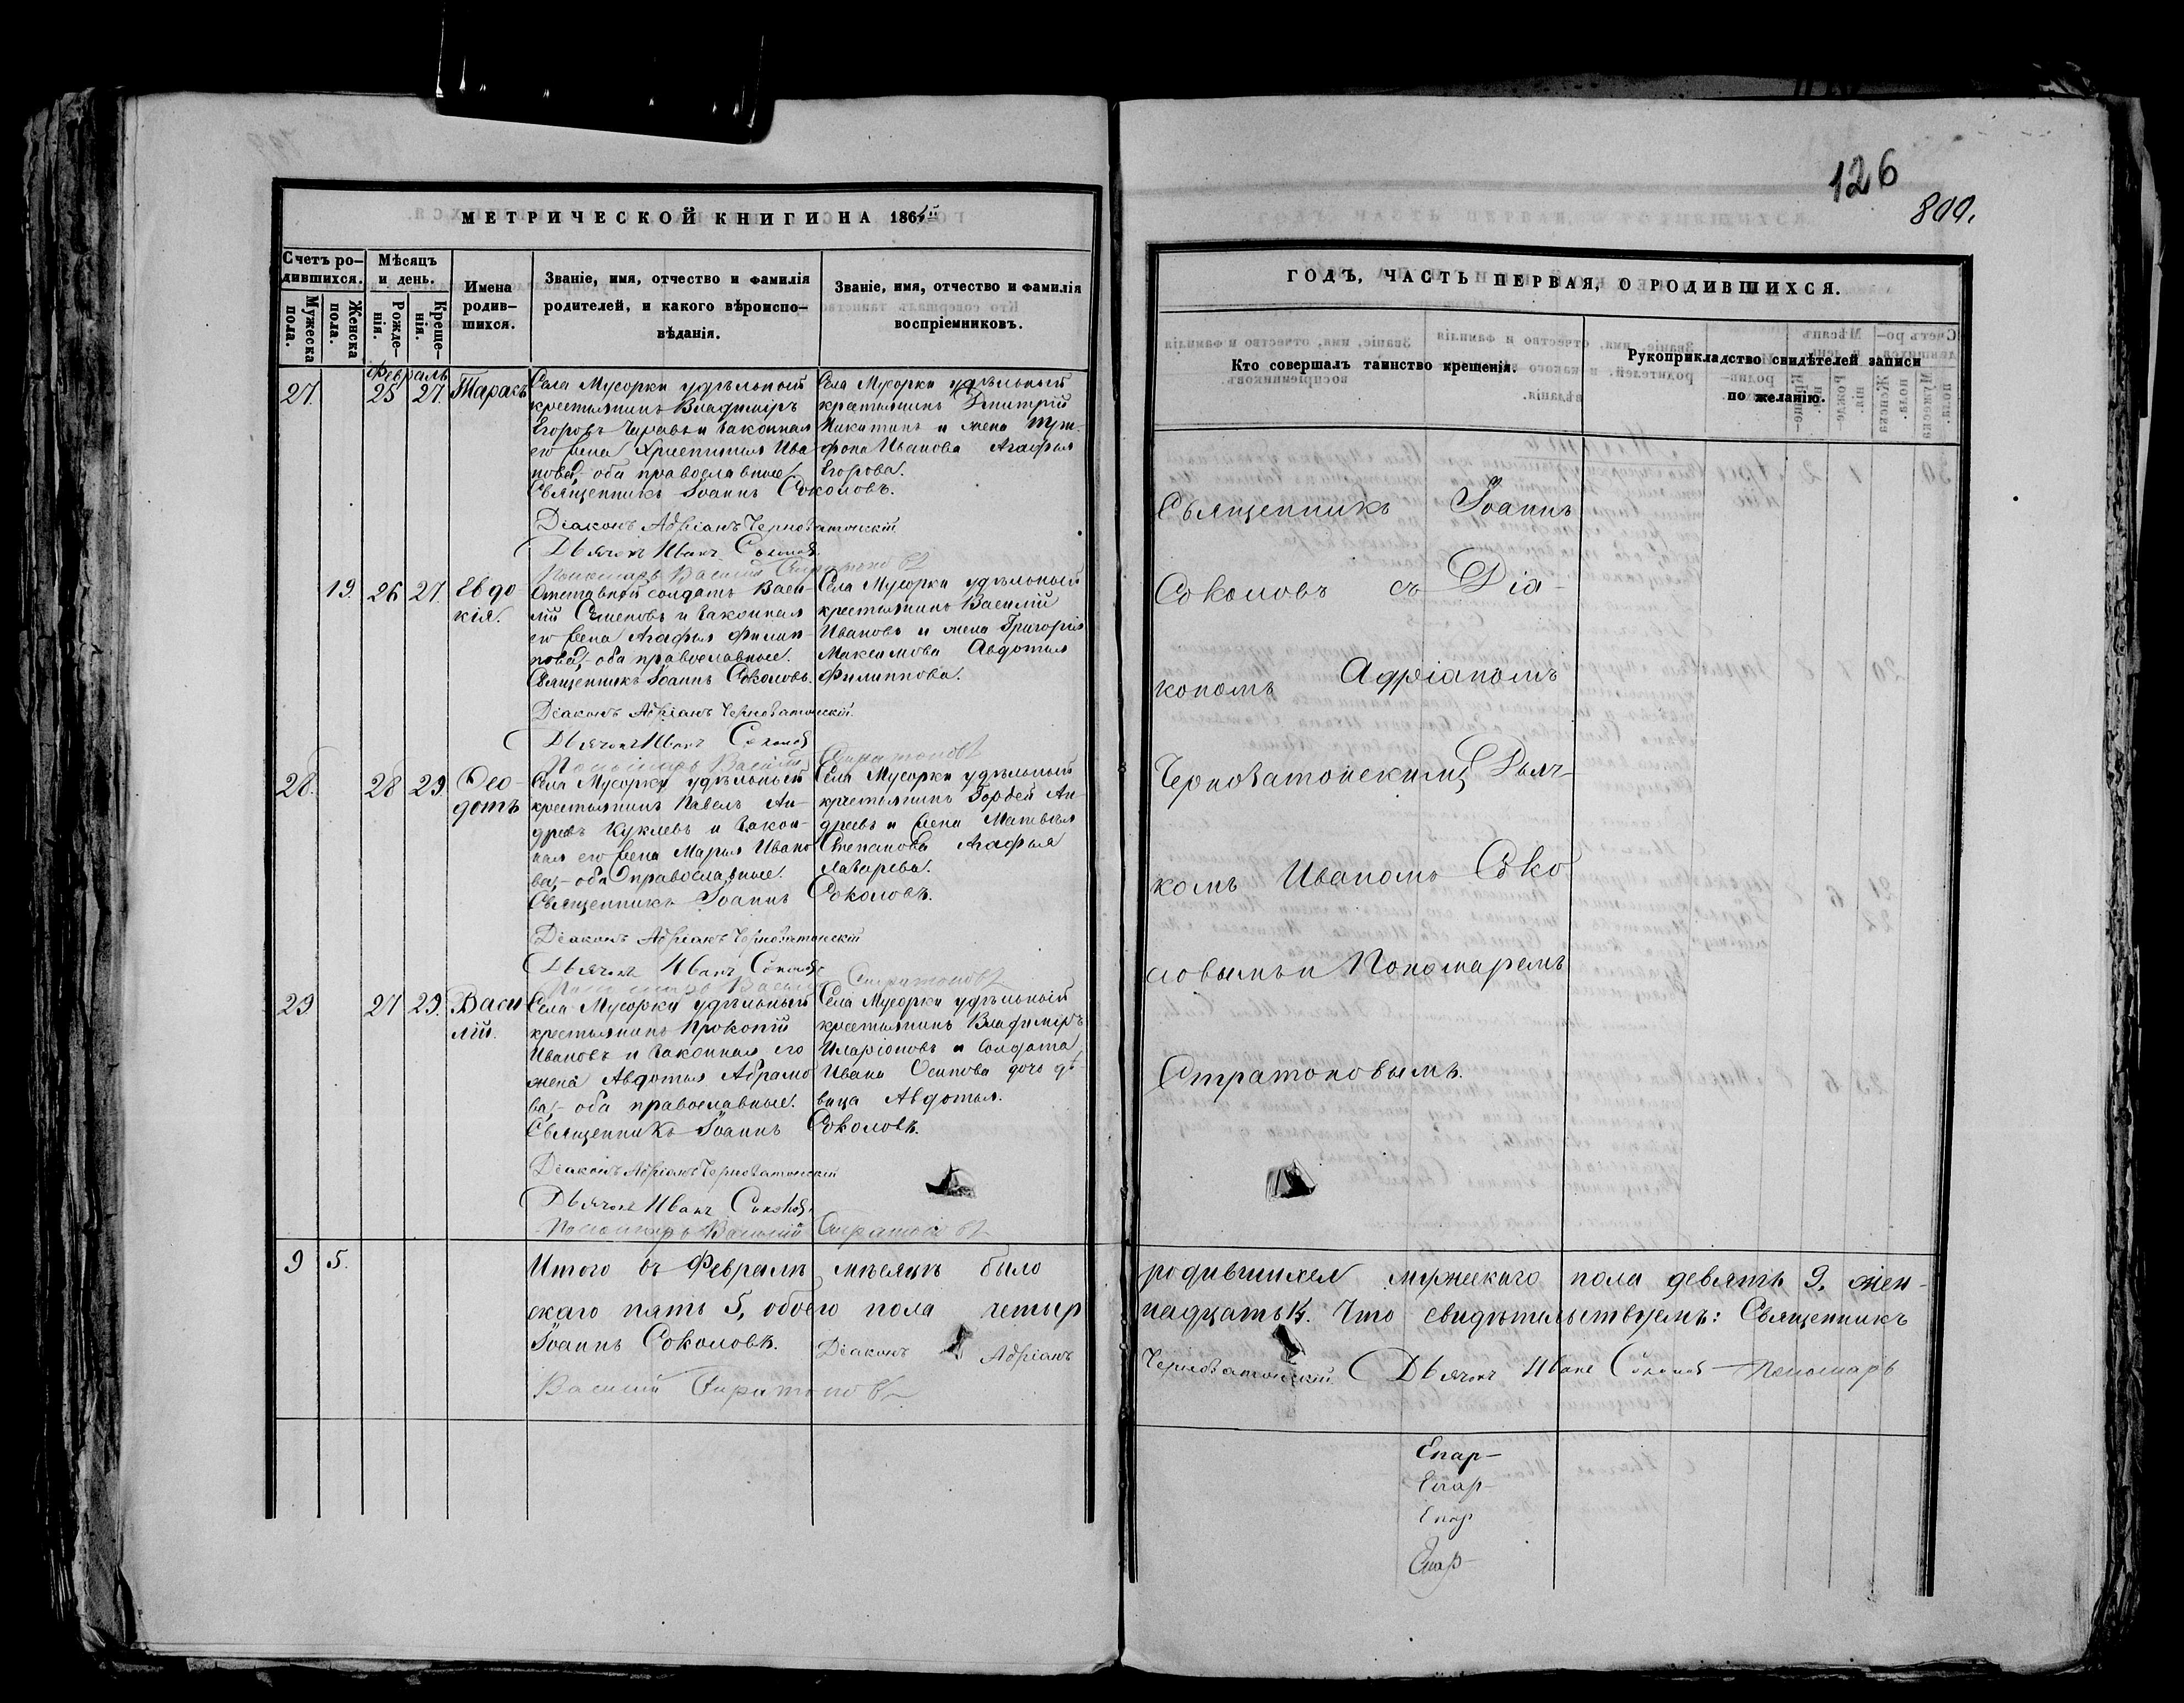 126
800.
МЕТРИЧЕСКОЙ КНИГИ НА 186
Счетъ ро-
дившихся.
Мужеска
пола.
Женска
пола.
Мѣсяцъ
и день.
Рожде-
нія.
Креще-
нія.
Имена
родив-
шихся.
Званіе, имя, отчество и фамилія
родителей, и какого вѣроиспо-
вѣданія.
Званіе, имя, отчество и фамилія
воспріемниковъ.
Февраль
27. 25 27. Тарасъ
Села Мусорки удѣльный
крестьянинъ Владиміръ
Егоровъ и законная
его жена Христинья Ива
нова, оба православные.
Священникъ Іоаннъ Соколовъ.
Діаконъ Адріанъ Черноватонскій
Дьячекъ Иванъ Соколовъ
Пономарь Василій Стратоновъ
Села Мусорки удѣльный
крестьянинъ Дмитрій
Никитинъ и жена Три-
фона Иванова Агафья
Егорова.
19. 26 27. Евдо
кія.
Отставной солдатъ Васи-
лій Семеновъ и законная
его жена Агафья Филип-
пова, оба православные.
Священникъ Іоаннъ Соколовъ.
Діаконъ Адріанъ Черноватонскій.
Дьячекъ Иванъ Соколовъ
Пономарь Василій Стратоновъ
Села Мусорки удѣльный
крестьянинъ Василій
Ивановъ и жена Григорія
Максимова Авдотья
Филиппова.
28. 28 29. Ѳео-
дотъ
Села Мусорки удѣльный
крестьянинъ Павелъ Ан-
древъ Куклевъ и закон-
ная его жена Марья Ивано
ва, оба православные.
Священникъ Іоаннъ Соколовъ.
Діаконъ Адріанъ Черноватонскій
Дьячекъ Иванъ Соколовъ
Пономарь Василій Стратоновъ
Села Мусорки удѣльный
крестьянинъ Гордей Ан-
дреевъ и жена Матвѣя
Степанова Агафья
Лазарева.
29 27 29. Васи
лій.
Села Мусорки удѣльный
крестьянинъ Прокопій
Ивановъ и законная его
жена Авдотья Абрамо
ва, оба православные.
Священникъ Іоаннъ Соколовъ.
Діаконъ Адріанъ Черноватонскій
Дьячекъ Иванъ Соколовъ
Пономарь Василій Стратоновъ
Села Мусорки удѣльный
крестьянинъ Владиміръ
Иларіоновъ и солдата
Ивана Осипова дочь дѣ
вица Авдотья.
9 5.
Итого въ Февралѣ мѣсяцѣ было
скаго пять 5, обоего пола четыр
Іоаннъ Соколовъ. Діаконъ Адріанъ
Василій Стратоновъ
ГОДЪ, ЧАСТЬ ПЕРВАЯ, О РОДИВШИХСЯ.
Кто совершалъ таинство крещенія.
Рукоприкладство свидѣтелей записи
по желанію.
Священникъ Іоаннъ
Соколовъ съ Діа-
кономъ Адріаномъ
Черноватонскимъ Дьяч-
комъ Иваномъ Соко
ловымъ и Пономаремъ
Стратоновымъ.
родившихся мужескаго пола девять 9, жен-
надцать 14. Что свидѣтельствуемъ: Священникъ
Черноватонскій Дьячекъ Иванъ Соколовъ Пономарь
Епар-
Епар-
Епар
Епар-